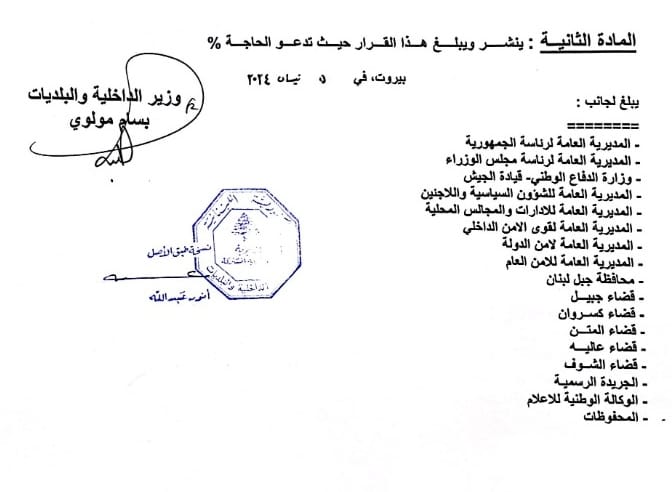 المادة الثانية : ينشر ويبلغ هذا القرار حيث تدعو الحاجة %
بيروت، في ٥ نيسان ٢٠٢٤
وزير الداخلية والبلديات
بسام مولوي
يبلغ لجانب :
========
- المديرية العامة لرئاسة الجمهورية
- المديرية العامة لرئاسة مجلس الوزراء
- وزارة الدفاع الوطني- قيادة الجيش
- المديرية العامة للشؤون السياسية واللاجئين
- المديرية العامة للادارات والمجالس المحلية
- المديرية العامة لقوى الامن الداخلي
- المديرية العامة لامن الدولة
- المديرية العامة للامن العام
- محافظة جبل لبنان
- قضاء جبيل
- قضاء كسروان
- قضاء المتن
- قضاء عاليه
- قضاء الشوف
- الجريدة الرسمية
- الوكالة الوطنية للاعلام
- المحفوظات
نسخة طبق الأصل
أنور عبدالله
الداخلية والبلديات